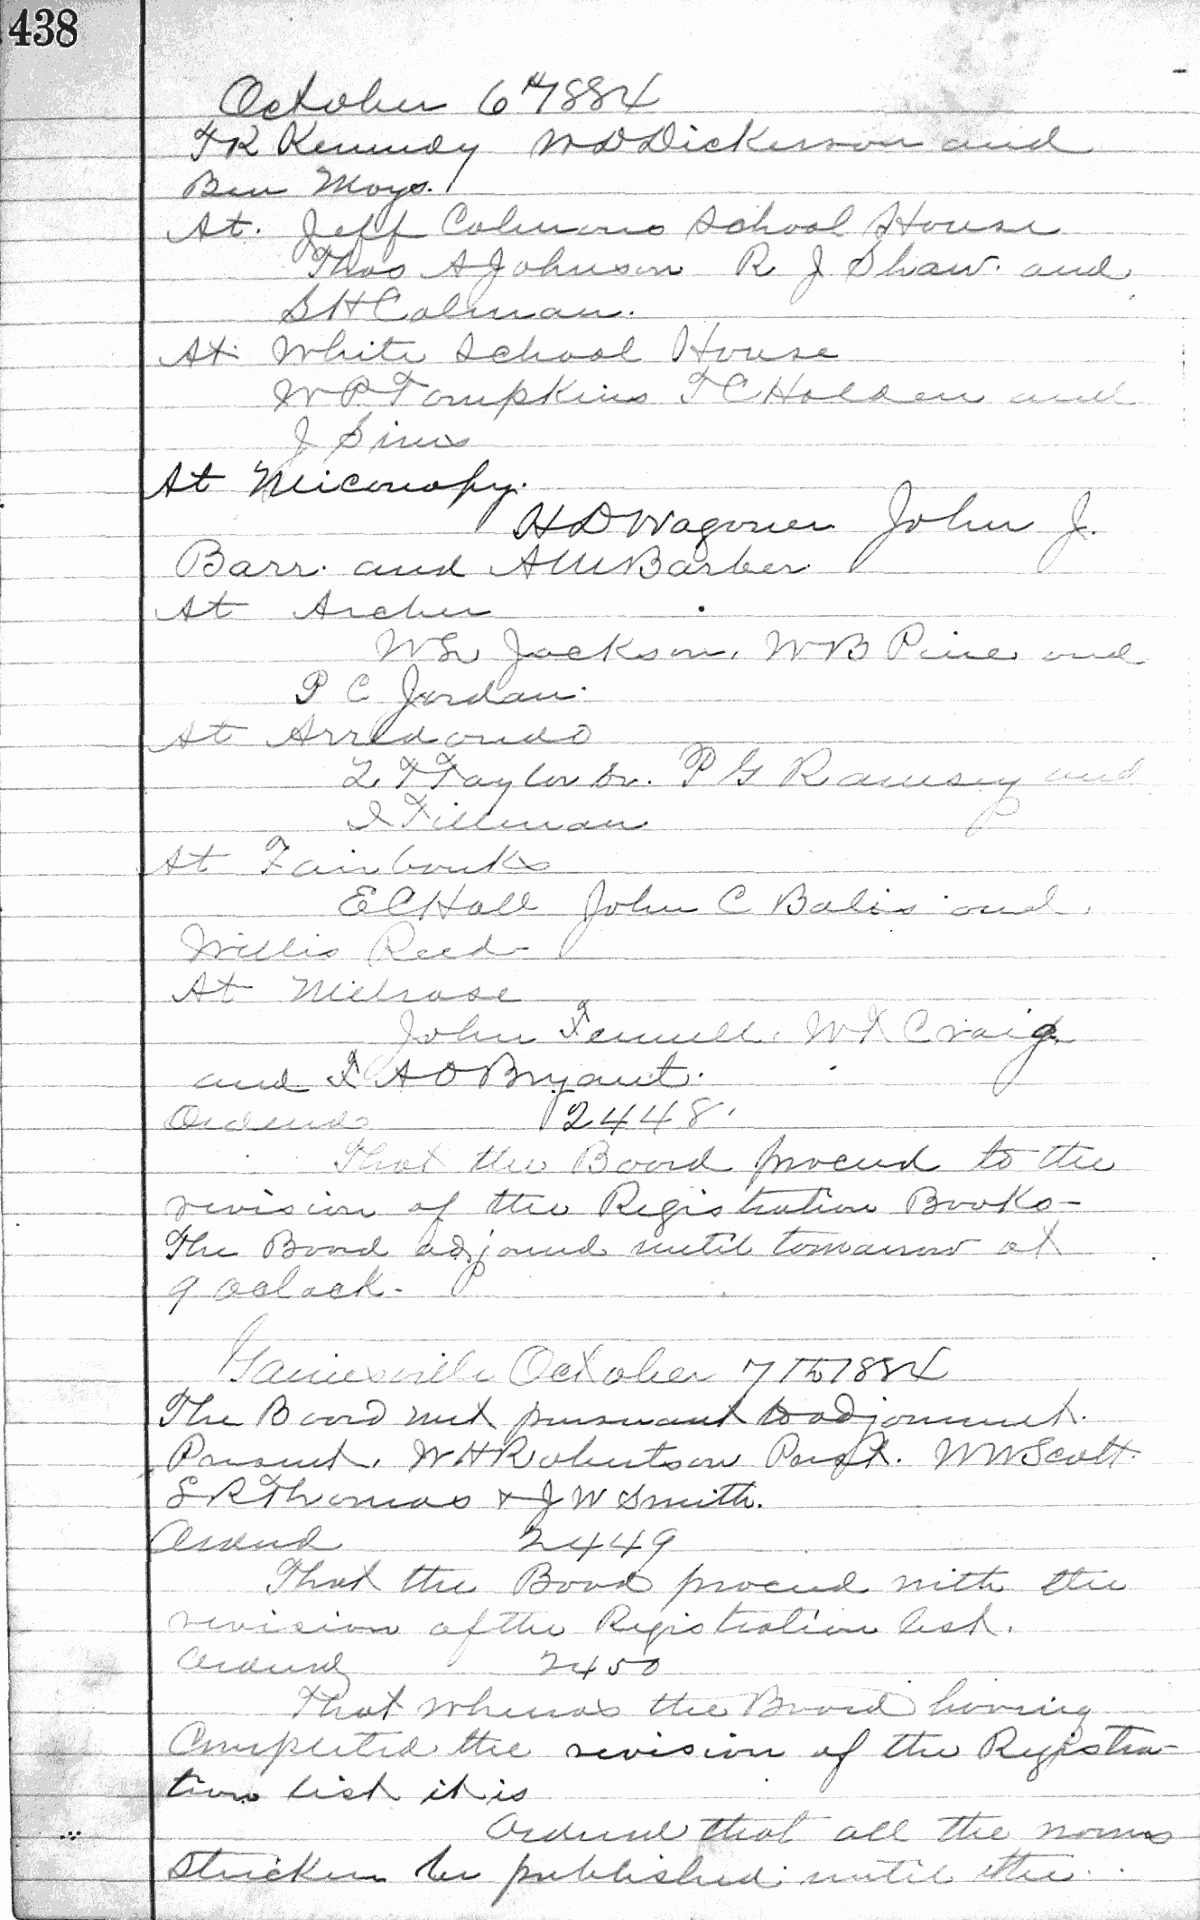 438
October 6th 1884
T K Kennedy W D Dickerson and
Ben Mays.
At. Jeff Colmans School House
Thos A Johnson R J Shaw. and
S H Colman.
At White School House
W P Tompkins T C Holden and
J Sims
At Miconopy.
H D Wagoner John J.
Barr. and A M Barber.
At Archer
W L Jackson. W B Pine and
P C Jordan.
At Arredondo
L T Taylor Sr. P G Ramsey and
I Tillman
At Fairbanks
E C Hall John C Balis and
Willis Reed
At Melrose
John Fennell. W T Craig
and T A O Bryant.
Ordered 2448.
That the Board proceed to the
revision of the Registration Books-
The Board adjourned until tomarrow at
9 Oclock.
Gainesville October 7th 1884
The Board met pursuant to adjournment.
Present. W H Robertson Prest. W W Scott.
S R Thomas & J W Smith.
Ordered 2449
That the Board proceed with the
revision of the Registration list.
Ordered 2450
That whereas the Board having
Completed the revision of the Registra-
tion list it is
Ordered that all the names
Stricken be published until the